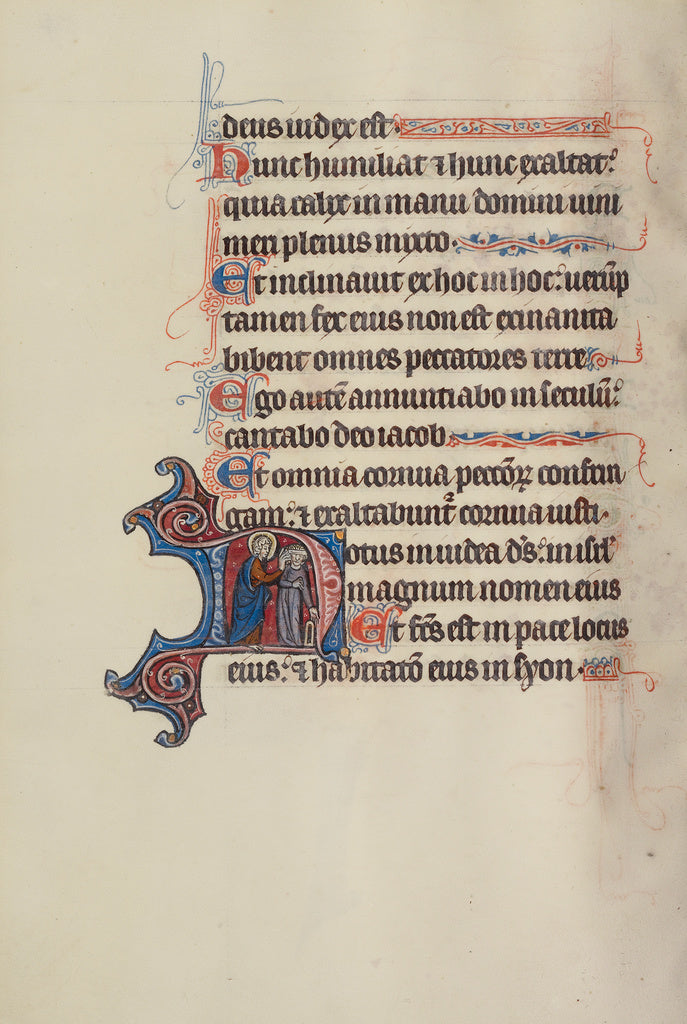 deus iudex est.
Hunc humiliat ⁊ hunc exaltat:
quia calix in manu domini uini
meri plenus mixto.
Et inclinauit ex hoc in hoc: uerūp
tamen fex eius non est exinanita
bibent omnes peccatores terre
Ego autē annuntiabo in seculū:
cantabo deo iacob.
Et omnia cornua peccōꝝ confrin
gam: ⁊ exaltabunt᷑ cornua iusti.
Notus in iudea d̄s: in isrl̄
magnum nomen eius
Et fc̄s est in pace locus
eius: ⁊ habitatō eius in syon.